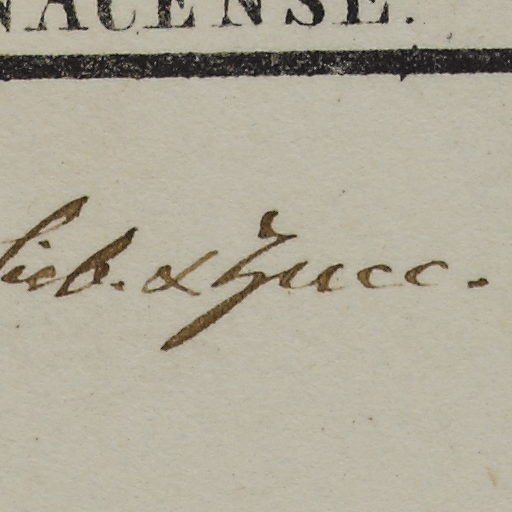 NACENSE.
Sieb. & Zucc.